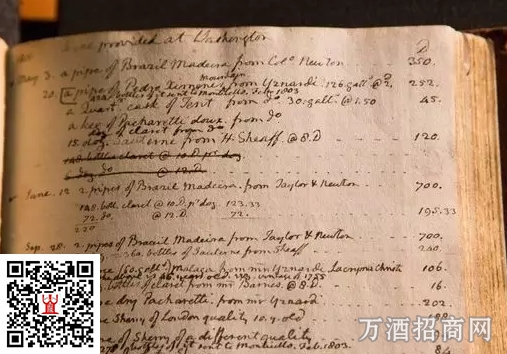 Wine provided at Washington
D
May 3. a pipe of Brazil Madeira from Colo. Newton 350.
mountain
20. a pipe of Pedro Ximenes from Yznardi. 126. galls. @ 2. 252.
bottles of it sent to Monticello. Feb. 1803
a Quart. cask of Tent from do. 30. galls. @ 1.50 45.
a keg of Pacharette doux. from do
of claret from do
15. doz. Sauterne from H. Sheaff. @ 8. D 120.
148. bottles claret @ 10. D. pr. doz.
6 doz. do @ 12. D
June. 12 2 pipes of Brazil Madeira. from Taylor & Newton 700.
148. bott. claret @ 10. D. pr. doz. 123.33
72. do. @ 12. D. 72. 195.33
220
Sep. 28. 2 pipes of Brazil Madeira from Taylor & Newton 700.
360. bottles of Sauterne from Sheaff 240.
Malaga from mr Yznardi Lacryma Christi 106.
bottles of claret from mr Barnes. @ 8. D 16.
dry Pacharetti from mr Yznardi 202
Sherry of London quality 10. y. old
of Sherry of a different quality
278. bottles of it sent to Monticello. Feb. 1803. 84
万酒招商网